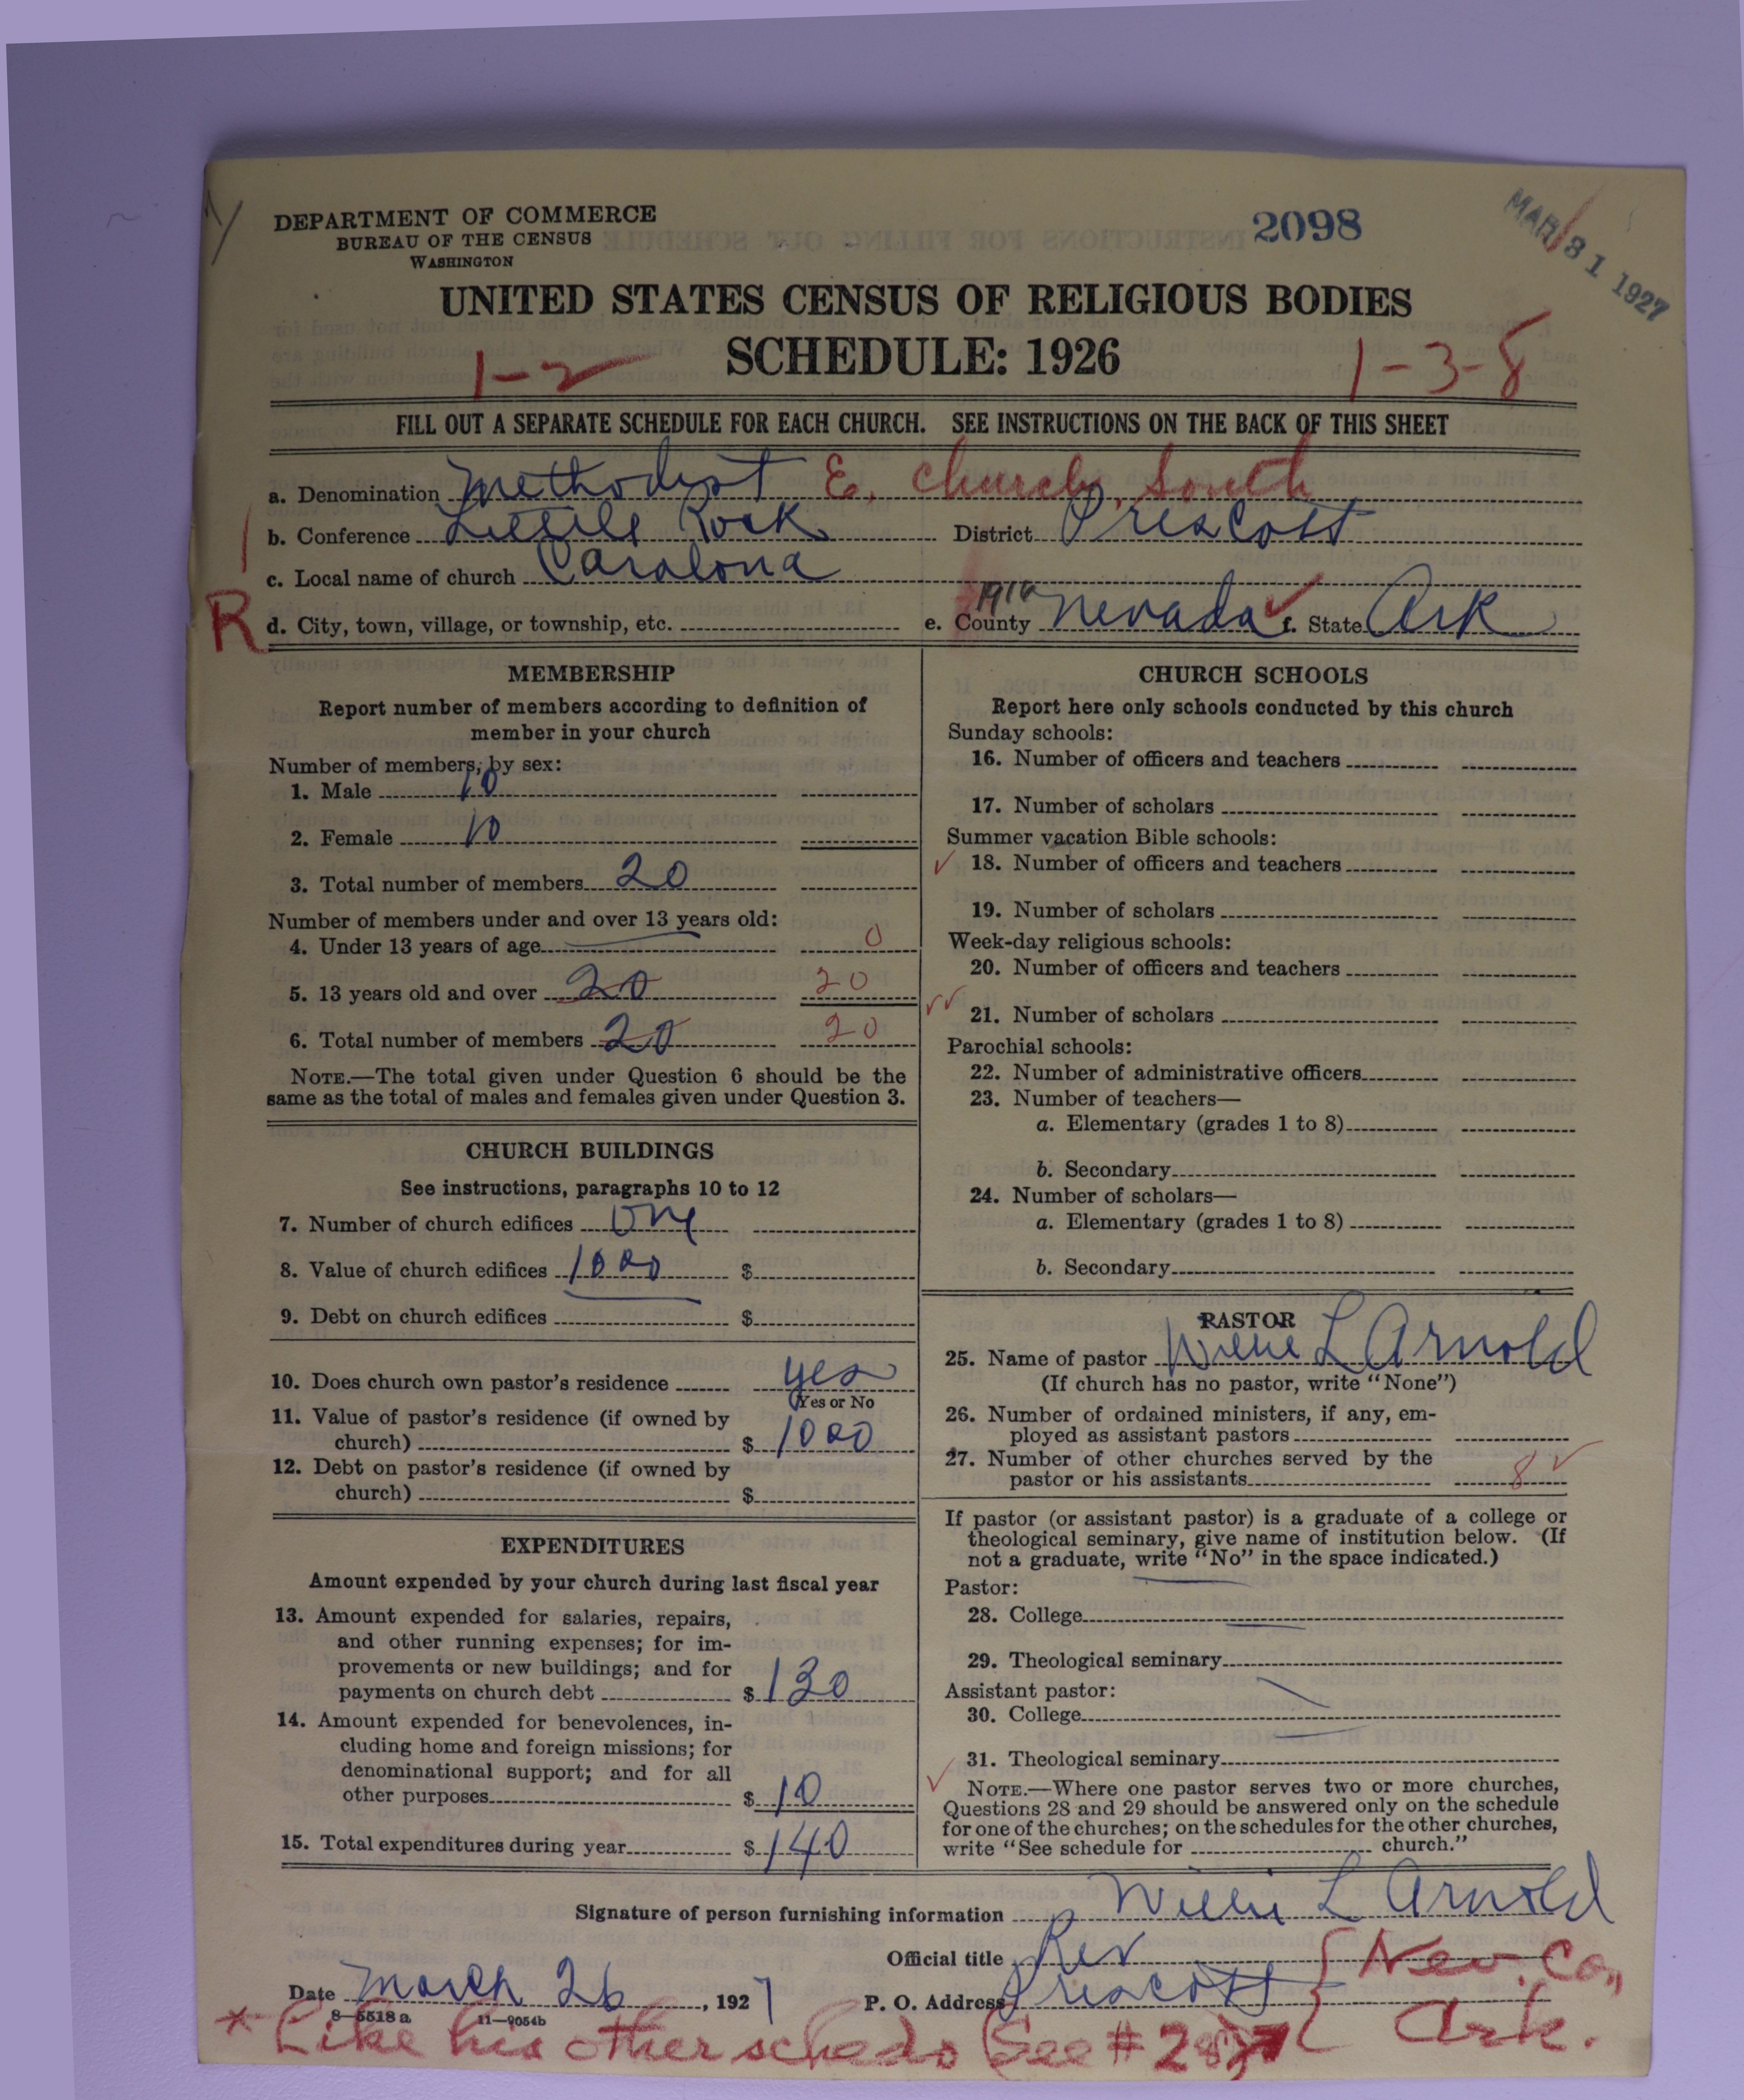 DEPARTMENT OF COMMERCE
BUREAU OF THE CENSUS
WASHINGTON
2098
MAR 31 1927
UNITED STATES CENSUS OF RELIGIOUS BODIES
SCHEDULE: 1926
1-2
1-3-8
FILL OUT A SEPARATE SCHEDULE FOR EACH CHURCH. SEE INSTRUCTIONS ON THE BACK OF THIS SHEET
a. Denomination Methodist E. Church, South
b. Conference Little Rock District Prescott
c. Local name of church Caralona
R
d. City, town, village, or township, etc. e. County Nevada f. State Ark
MEMBERSHIP
Report number of members according to definition of
member in your church
Number of members, by sex:
1. Male 10
2. Female 10
3. Total number of members 20
Number of members under and over 13 years old:
4. Under 13 years of age 0
5. 13 years old and over 20 20
6. Total number of members 20 20
NOTE.—The total given under Question 6 should be the
same as the total of males and females given under Question 3.
CHURCH BUILDINGS
See instructions, paragraphs 10 to 12
7. Number of church edifices one
8. Value of church edifices 1000 $
9. Debt on church edifices $
10. Does church own pastor's residence yes
(Yes or No
11. Value of pastor's residence (if owned by
church) $ 1000
12. Debt on pastor's residence (if owned by
church) $
EXPENDITURES
Amount expended by your church during last fiscal year
13. Amount expended for salaries, repairs,
and other running expenses; for im-
provements or new buildings; and for
payments on church debt $ 130
14. Amount expended for benevolences, in-
cluding home and foreign missions; for
denominational support; and for all
other purposes $ 10
15. Total expenditures during year $ 140
CHURCH SCHOOLS
Report here only schools conducted by this church
Sunday schools:
16. Number of officers and teachers
17. Number of scholars
Summer vacation Bible schools:
18. Number of officers and teachers
19. Number of scholars
Week-day religious schools:
20. Number of officers and teachers
21. Number of scholars
Parochial schools:
22. Number of administrative officers
23. Number of teachers—
a. Elementary (grades 1 to 8)
b. Secondary
24. Number of scholars—
a. Elementary (grades 1 to 8)
b. Secondary
PASTOR
25. Name of pastor Willie L Arnold
(If church has no pastor, write "None")
26. Number of ordained ministers, if any, em-
ployed as assistant pastors
27. Number of other churches served by the
pastor or his assistants 8
If pastor (or assistant pastor) is a graduate of a college or
theological seminary, give name of institution below. (If
not a graduate, write "No" in the space indicated.)
Pastor:
28. College
29. Theological seminary
Assistant pastor:
30. College
31. Theological seminary
NOTE.—Where one pastor serves two or more churches,
Questions 28 and 29 should be answered only on the schedule
for one of the churches; on the schedules for the other churches,
write "See schedule for church."
Signature of person furnishing information Willie L Arnold
Official title Rev
Date March 26, 1927 P. O. Address Prescott { Nev. Co.,
Ark.
8—5518a 11—9054b
* Like his other scheds (See #